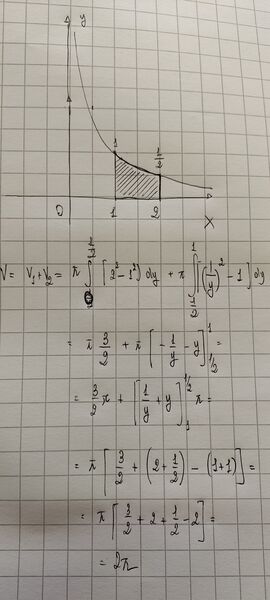 y
1
1/2
0 1 2 x
V = V₁+V₂ = π ∫₀^{1/2} [2²-1²] dy + π ∫_{1/2}^{1} [(1/y)² - 1] dy
= π 3/2 + π [-1/y - y]_{1/2}^{1} =
= 3/2 π + [1/y + y]_{1}^{1/2} π =
= π [3/2 + (2 + 1/2) - (1+1)] =
= π [3/2 + 2 + 1/2 - 2] =
= 2π